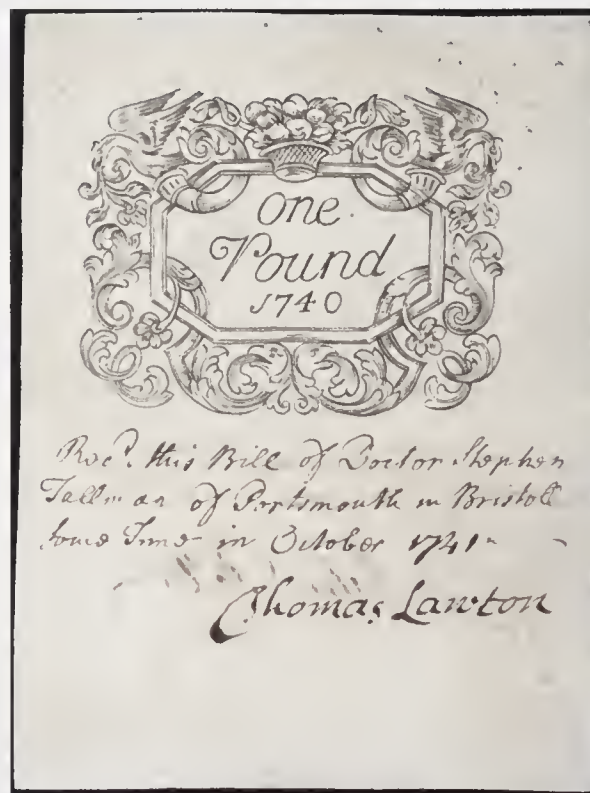 One
Pound
1740
Recd. this Bill of Doctor Stephen
Tallman of Portsmouth in Bristoll
some Time in October 1741
Thomas Lawton